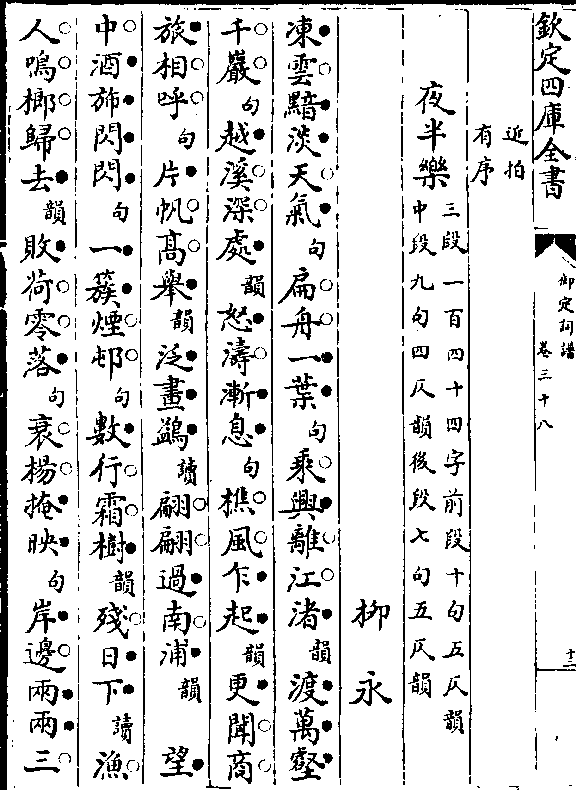 欽定四庫全書
御定詞譜
卷三十八
十二
近拍
有序
夜半樂
三段一百四十四字前段十句五仄韻
中段九句四仄韻後段七句五仄韻
柳永
凍雲黯淡天氣句扁舟一葉句乘興離江渚韻渡萬壑
千巖句越溪深處韻怒濤漸息句樵風乍起韻更聞商
旅相呼句片帆高舉韻泛畫鷁讀翩翩過南浦韻 望
中酒斾閃閃句一簇煙邨句數行霜樹韻殘日下讀漁
人鳴榔歸去韻敗荷零落句衰楊掩映句岸邊兩兩三